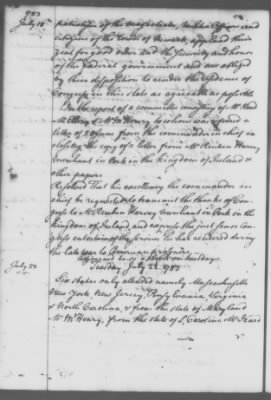 1783
July 18
patriotism of the magistrates, militia officers and
citizens of the town of Newark approves their
zeal for good order and the Security and honor
of the federal government and are obliged
by their disposition to render the residence of
Congress in this state as agreeable as possible
On the report of a committee consisting of Mr Read
Mr Ellery & Mr McHenry to whom was referred a
letter of from the commander in chief in
closing the copy of a letter from Mr Reuben Harvey
merchant in Cork in the kingdom of Ireland &
other papers
Resolved That his excellency the commander in
chief be requested to transmit the thanks of Con
gress to Mr Reuben Harvey merchant in Cork in the
kingdom of Ireland and express the just sense Con
gress entertains of the services he has rendered during
the late war to American prisoners
Adjourned to 10 o'Clock on tuesday
July 22
Tuesday July 22. 1783
Six states only attended namely Massachusetts
New York New Jersey, Pensylvania, Virginia
& North Carolina, & from the state of Maryland
Mr McHenry, from the state of S. Carolina Mr Izard